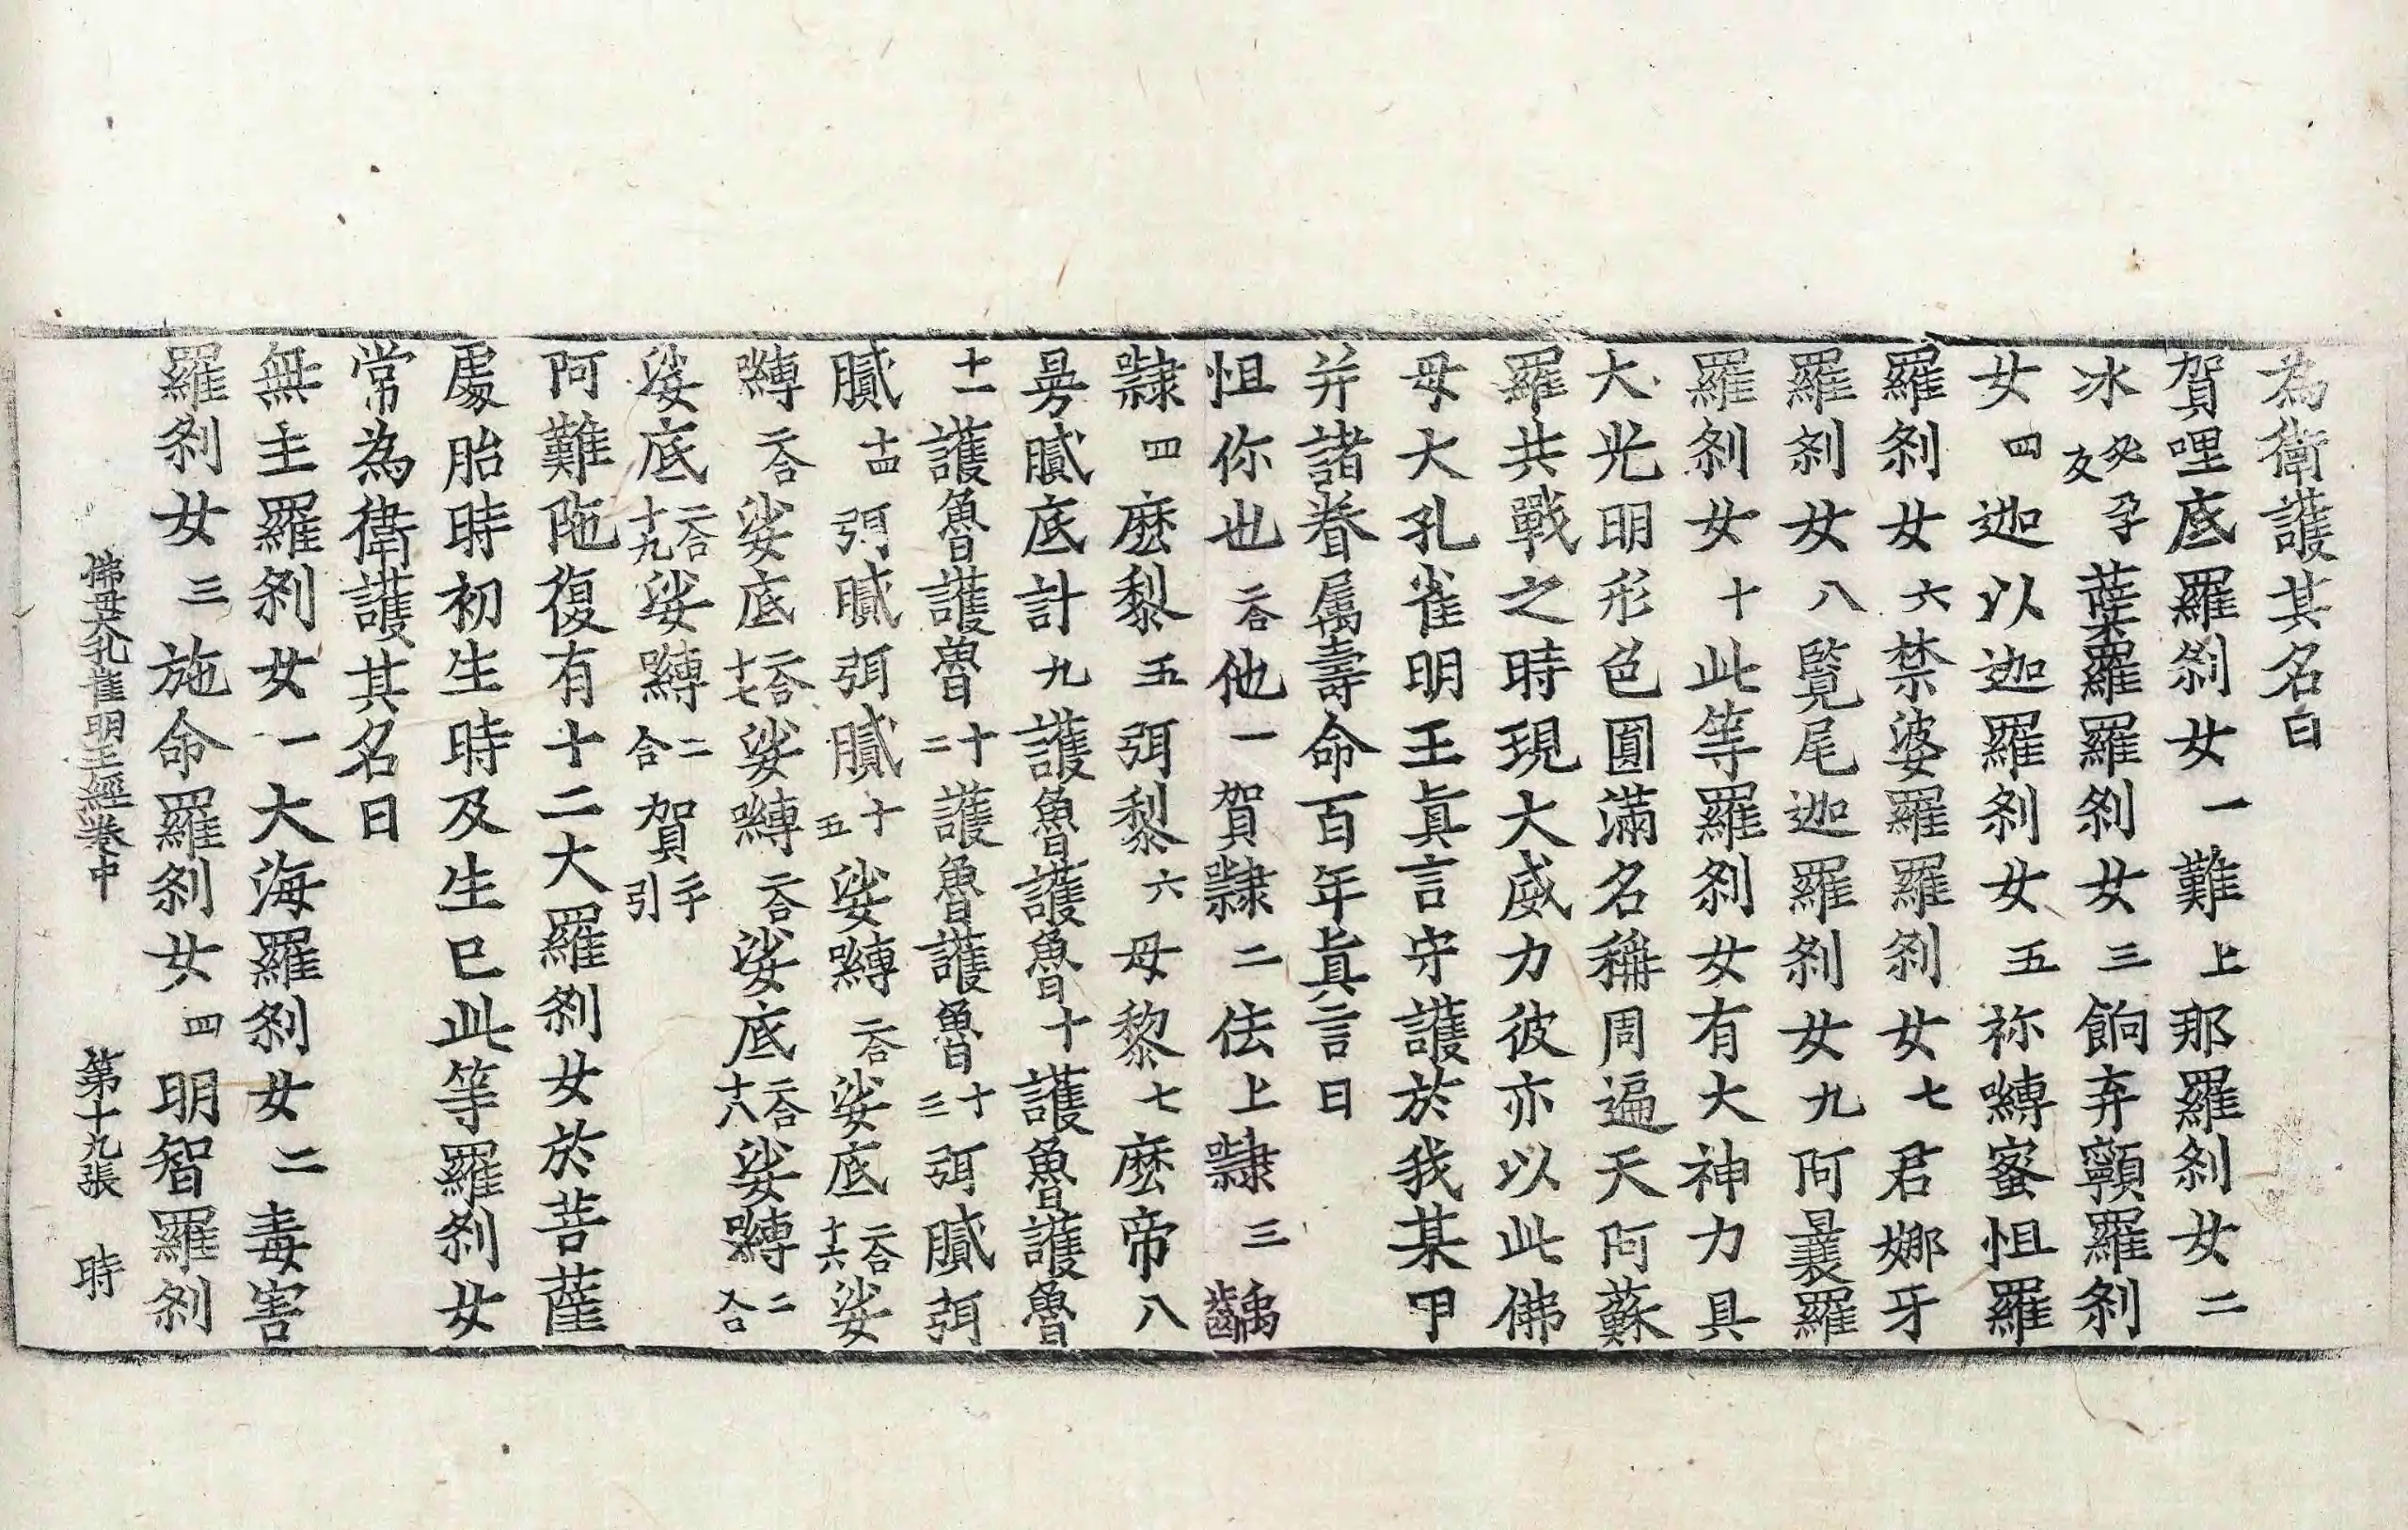 為衛護其名曰
賀哩底羅剎女一難上那羅剎女二
冰癸反孕蘖羅羅剎女三餉弃顐羅剎
女四迦以迦羅剎女五祢嚩蜜怛羅
羅剎女六禁婆羅羅剎女七君娜牙
羅剎女八覧尾迦羅剎女九阿曩羅
羅剎女十此等羅剎女有大神力具
大光明形色圓滿名稱周遍天阿蘇
羅共戰之時現大威力彼亦以此佛
母大孔雀明王真言守護於我某甲
并諸眷属壽命百年真言曰
怛你也二合他一賀隸二佉上隸三齲
隸四麽黎五弭黎六母黎七麽帝八
曼膩底計九護魯護魯十護魯護魯
十一護魯護魯十二護魯護魯十三弭膩弭
膩十四弭膩弭膩十五娑嚩二合娑底二合十六娑
嚩二合娑底二合十七娑嚩二合娑底二合十八娑嚩二合
娑底二合十九娑嚩二合賀引二十
阿難陁復有十二大羅剎女於菩薩
處胎時初生時及生已此等羅剎女
常為衛護其名曰
無主羅剎女一大海羅剎女二毒害
羅剎女三施命羅剎女四明智羅剎
佛母大孔雀明王經卷中 第十九張 時